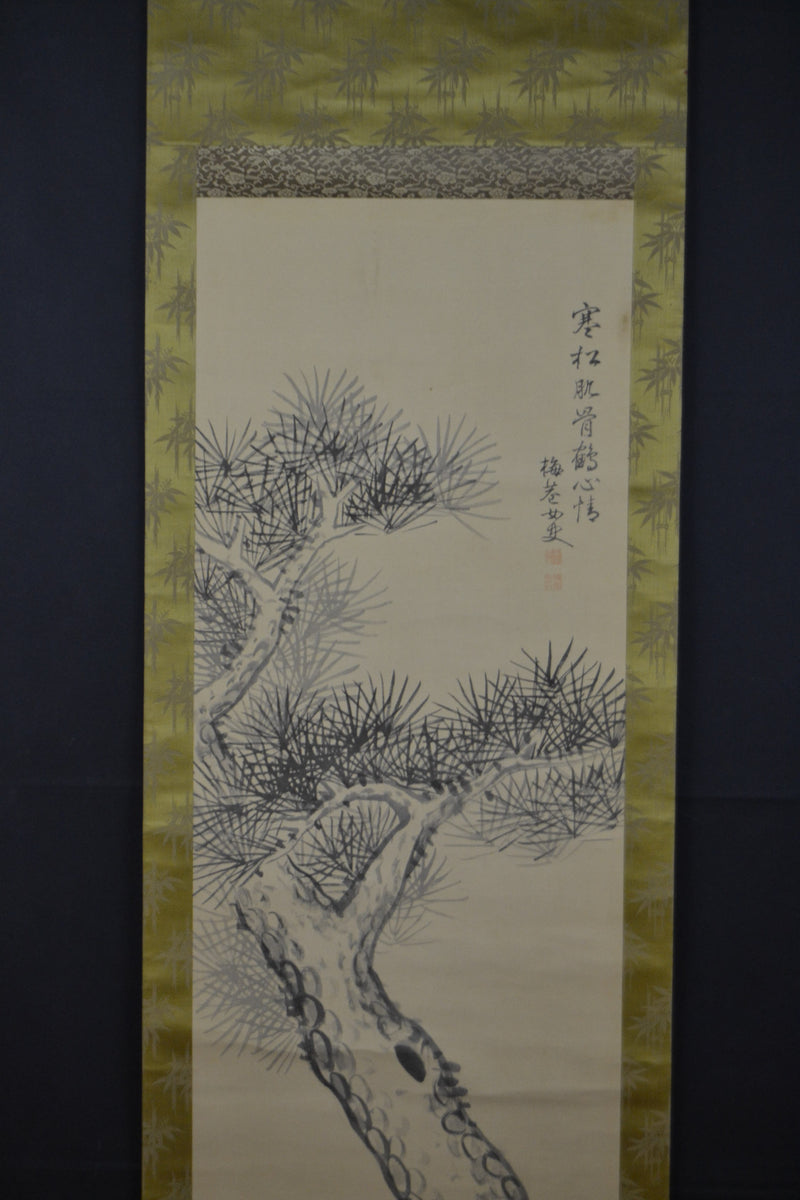 寒松肌骨鶴心情
梅荅女史